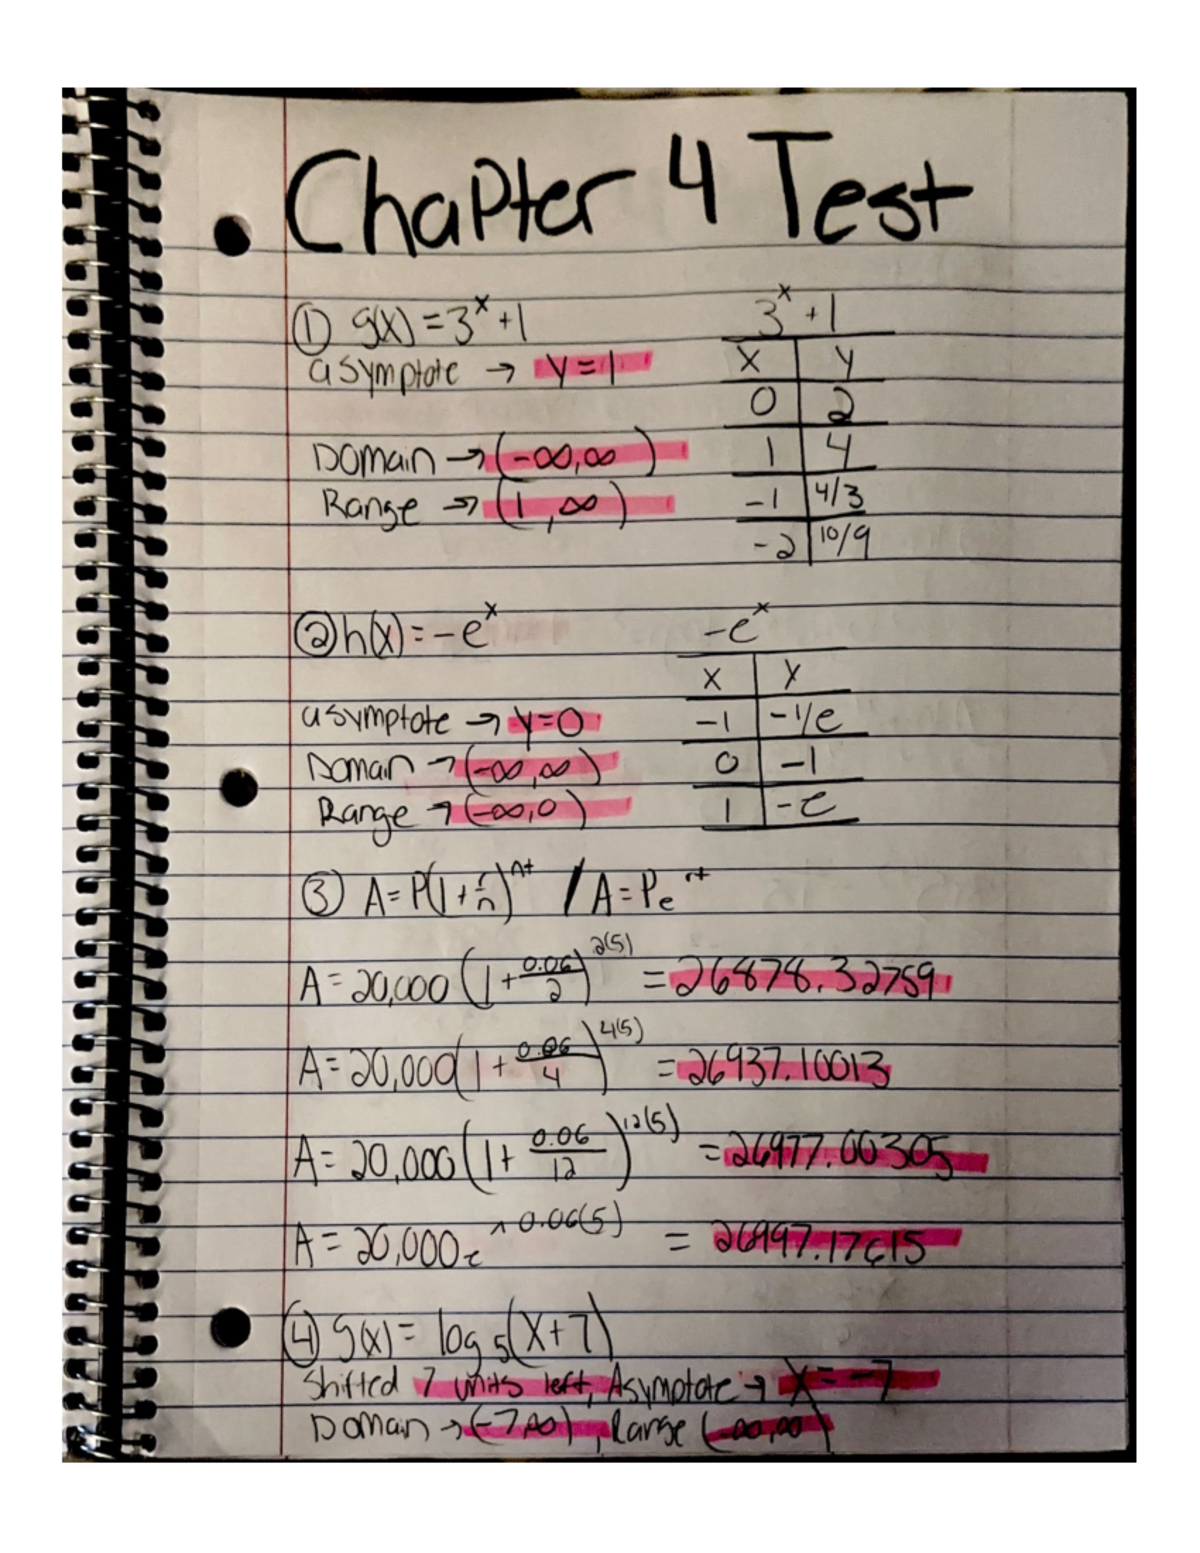 Chapter 4 Test
① g(x) = 3^x + 1
asymptote → y = 1
Domain → (-∞,∞)
Range → (1,∞)
3^x + 1
x y
0 2
1 4
-1 4/3
-2 10/9
② h(x) = -e^x
asymptote → y=0
Doman → (-∞,∞)
Range → (-∞,0)
-e^x
x y
-1 -1/e
0 -1
1 -e
③ A = P(1 + r/n)^nt / A = Pe^rt
A = 20,000 (1 + 0.06/2)^2(5) = 26878.32759
A = 20,000(1 + 0.06/4)^4(5) = 26937.10013
A = 20,000(1 + 0.06/12)^12(5) = 26977.00305
A = 20,000e^0.06(5) = 26997.17615
④ g(x) = log₅(x+7)
Shifted 7 units left, Asymptote → x = -7
Doman → (-7,∞), Range (-∞,∞)